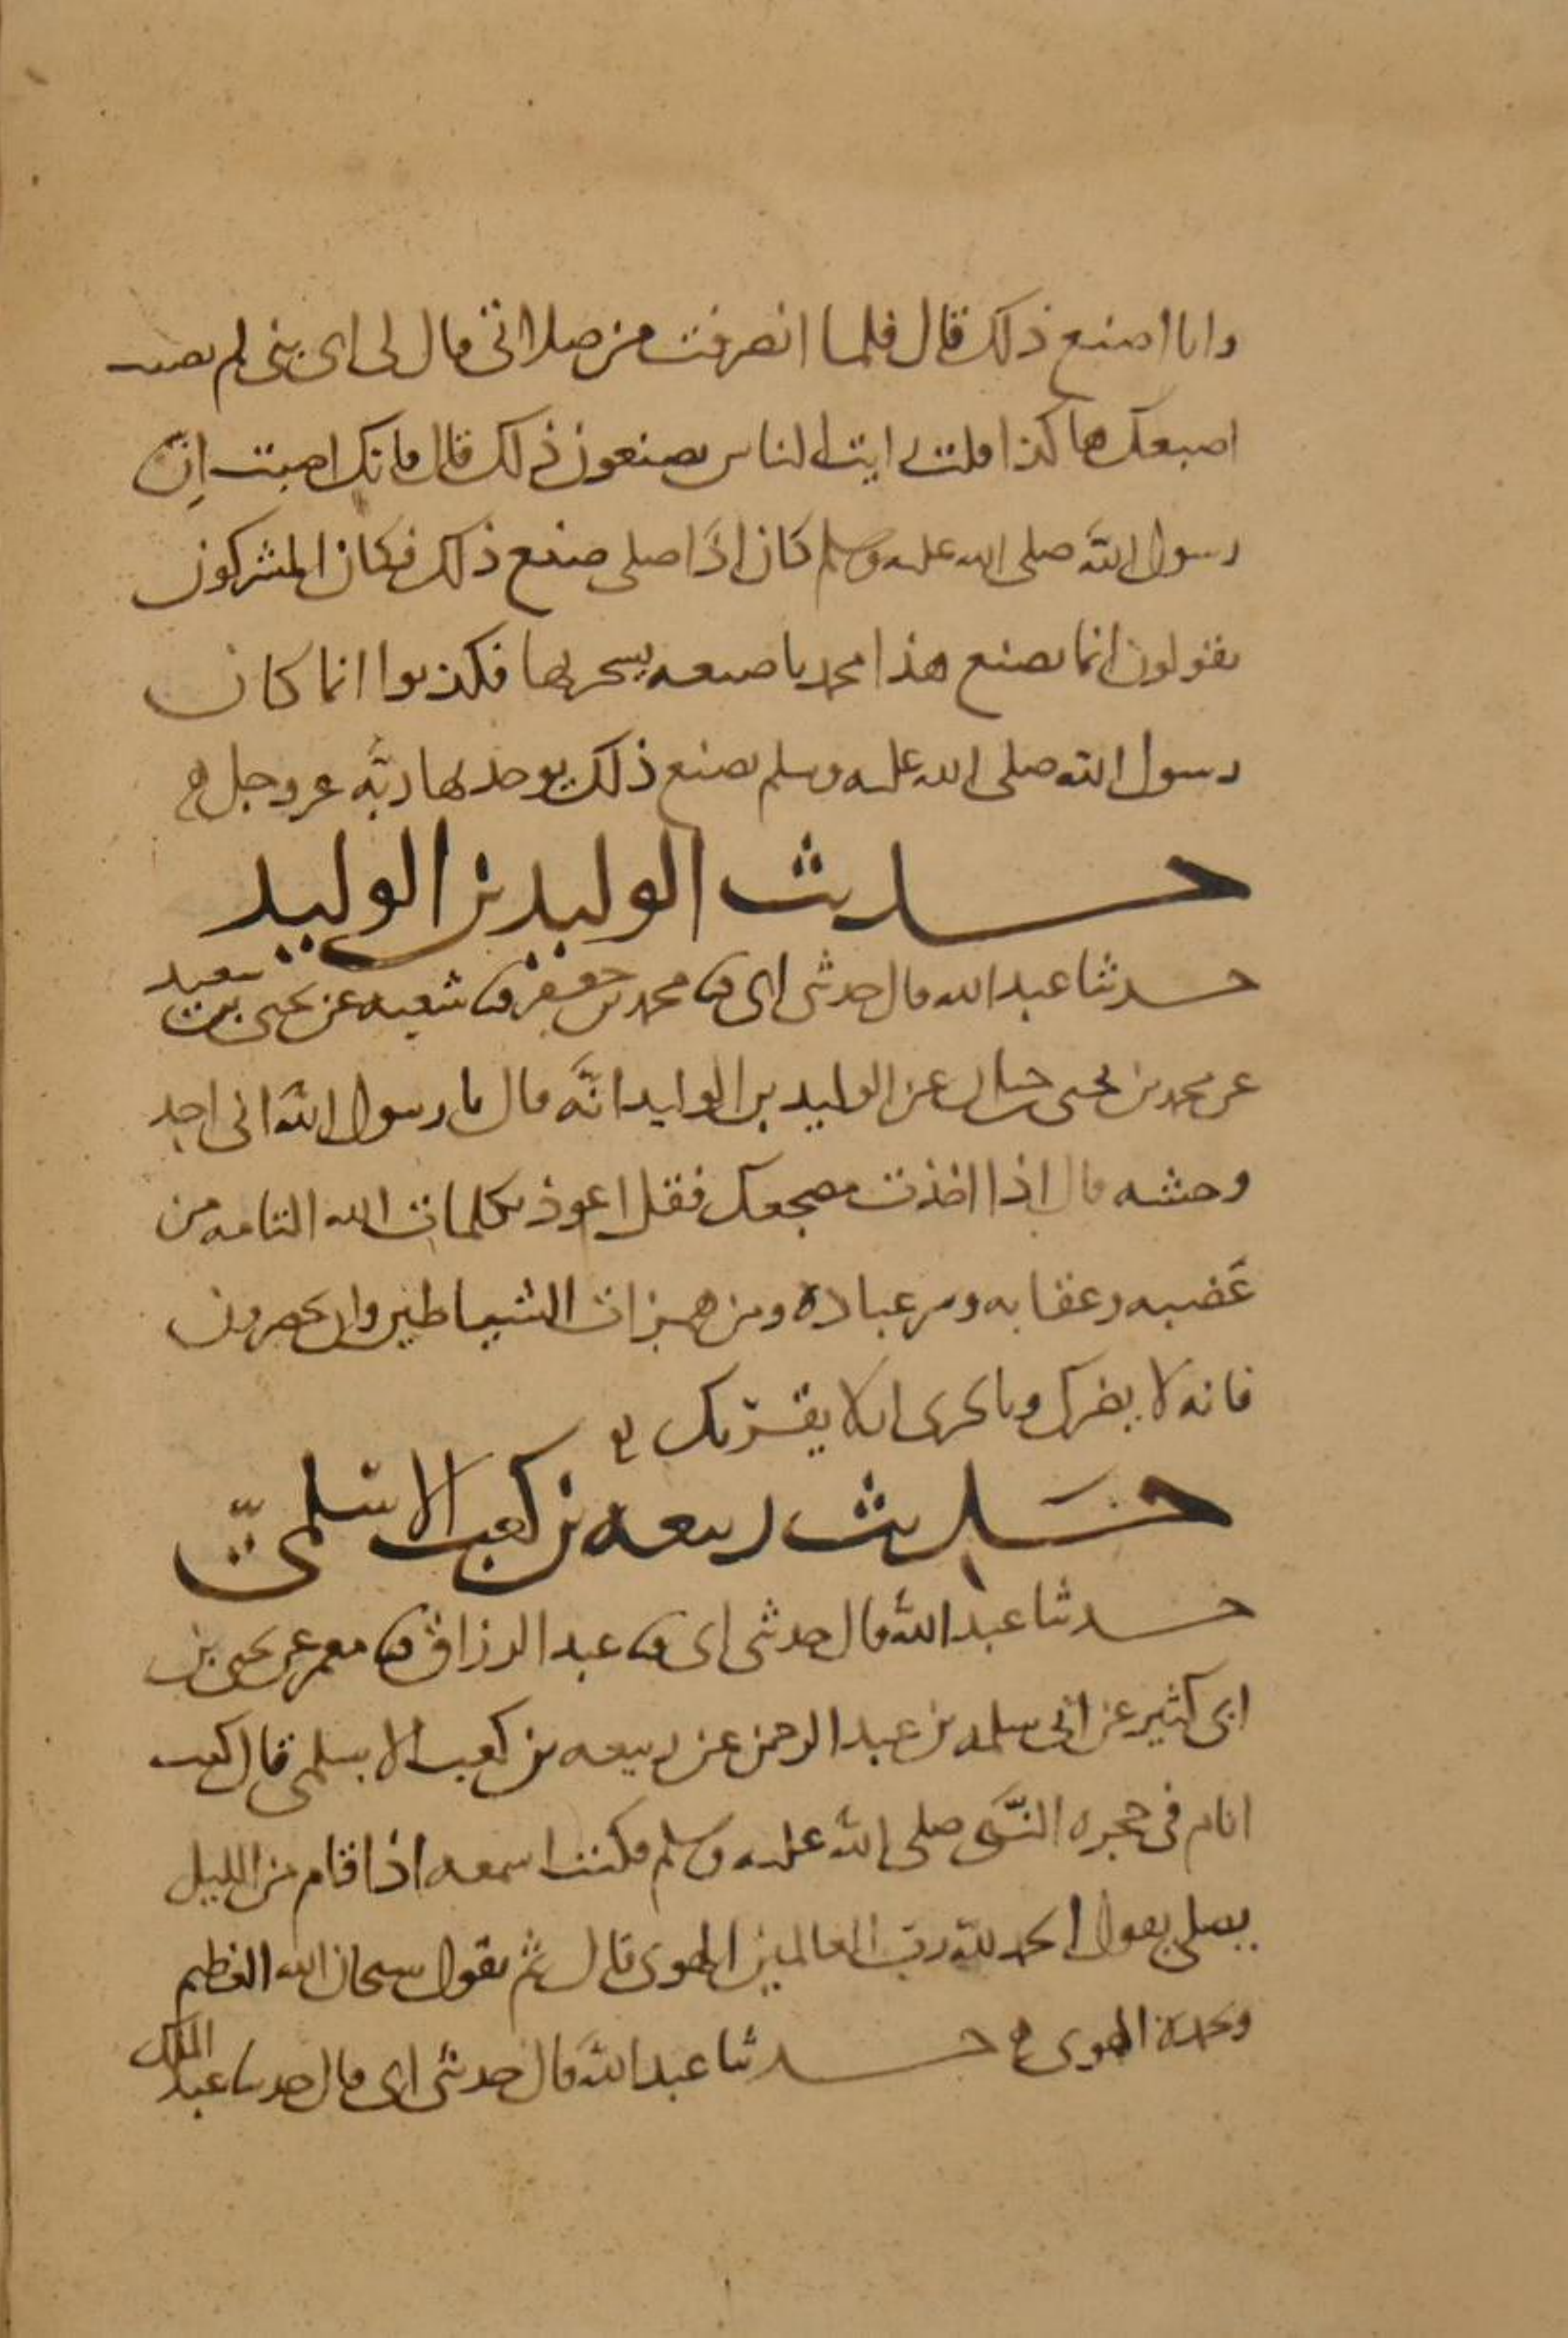 وانا اصنع ذلك قال فلما انصرفت من صلاتى قال لى اى بنى لم نصبت
اصبعك هاكذا قلت رايت الناس يصنعون ذلك قال فانك اصبت ان
رسول الله صلى الله عليه وسلم كان اذا صلى صنع ذلك فكان المشركون
يقولون انما يصنع هذا محمد باصبعه يسحر بها فكذبوا انما كان
رسول الله صلى الله عليه وسلم يصنع ذلك يوحد بها ربه عز وجل
حديث الوليد بن الوليد
حدثنا عبد الله قال حدثنى ابى ثنا محمد بن جعفر ثنا شعبه عن يحيى بن سعيد
عن محمد بن يحيى بن حبان عن الوليد بن الوليد انه قال يا رسول الله انى اجد
وحشه قال اذا اخذت مضجعك فقل اعوذ بكلمات الله التامه من
غضبه وعقابه وشر عباده ومن همزات الشياطين وان يحضرون
فانه لا يضرك وبالحرى ان لا يقربك
حديث ربيعه بن كعب الاسلمى
حدثنا عبد الله قال حدثنى ابى ثنا عبد الرزاق ثنا معمر عن يحيى بن
ابى كثير عن ابى سلمه بن عبد الرحمن عن ربيعه بن كعب الاسلمى قال كنت
انام فى حجره النبى صلى الله عليه وسلم فكنت اسمعه اذا قام من الليل
يصلى يقول الحمد لله رب العالمين الهوى قال ثم يقول سبحان الله العظيم
وبحمده الهوى حدثنا عبد الله قال حدثنى ابى قال حدثنا عبد الملك